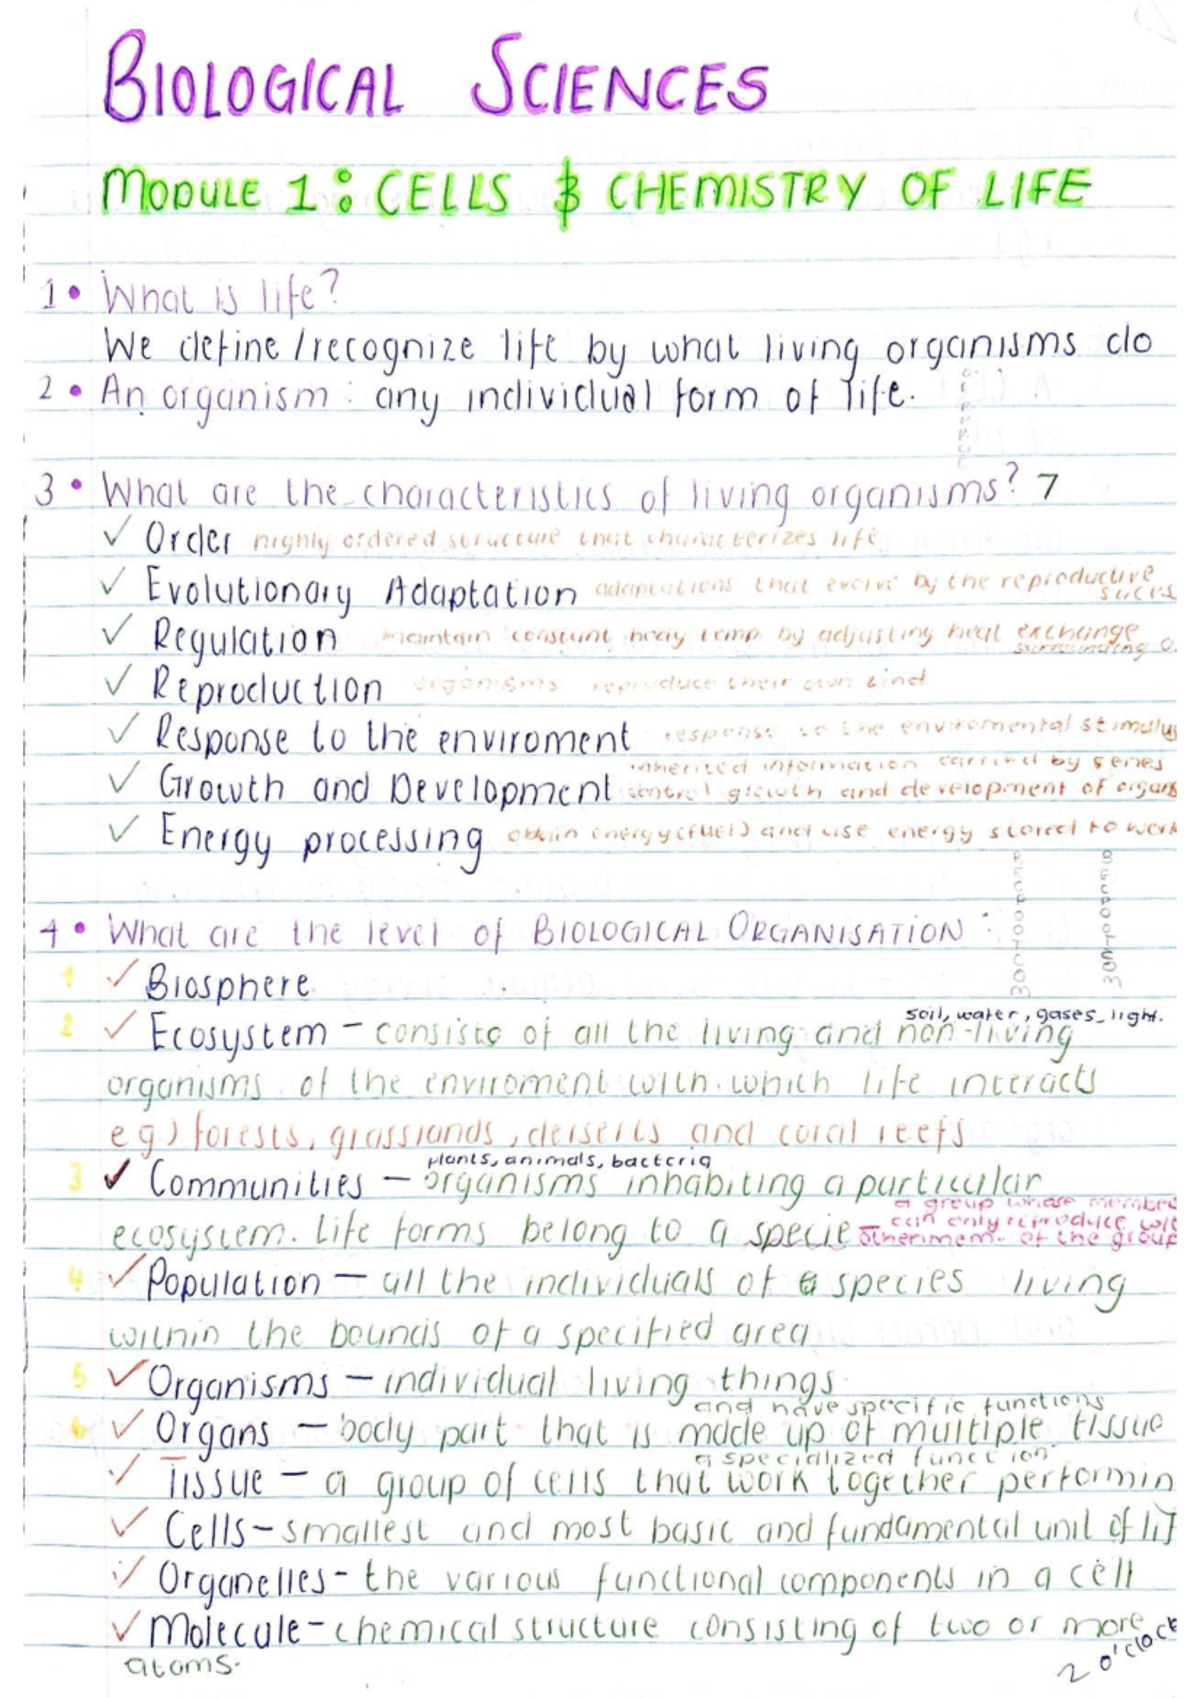 BIOLOGICAL SCIENCES
MODULE 1: CELLS & CHEMISTRY OF LIFE
1• What is life?
We define/recognize life by what living organisms do
2• An organism: any individual form of life.
3• What are the characteristics of living organisms? 7
✓ Order highly ordered structure that characterizes life
✓ Evolutionary Adaptation adaptations that evolve by the reproductive
✓ Regulation maintain constant body temp. by adjusting heat exchange
surrounding
✓ Reproduction organisms reproduce their own kind
✓ Response to the enviroment response to the enviromental stimulus
inherited information carried by genes
✓ Growth and Development control growth and development of organs
✓ Energy processing obtain energy(fuel) and use energy stored to work
4• What are the level of BIOLOGICAL ORGANISATION:
1 ✓ Biosphere
soil, water, gases, light.
2 ✓ Ecosystem – consists of all the living and non-living
organisms of the enviroment with which life interacts
eg) forests, grasslands, deiserts and coral reefs
plants, animals, bacteria
3 ✓ Communities – organisms inhabiting a particular
a group whose membe
ecosystem. Life forms belong to a specie – can only reproduce wit
other mem. of the group
4 ✓ Population – all the individuals of a species living
within the bounds of a specified area
5 ✓ Organisms – individual living things
and have specific functions
6 ✓ Organs – body part that is made up of multiple tissue
a specialized function.
✓ Tissue – a group of cells that work together performin
✓ Cells – smallest and most basic and fundamental unit of lif
✓ Organelles – the various functional components in a cell
✓ Molecule – chemical structure consisting of two or more
atoms.
2 o'clock